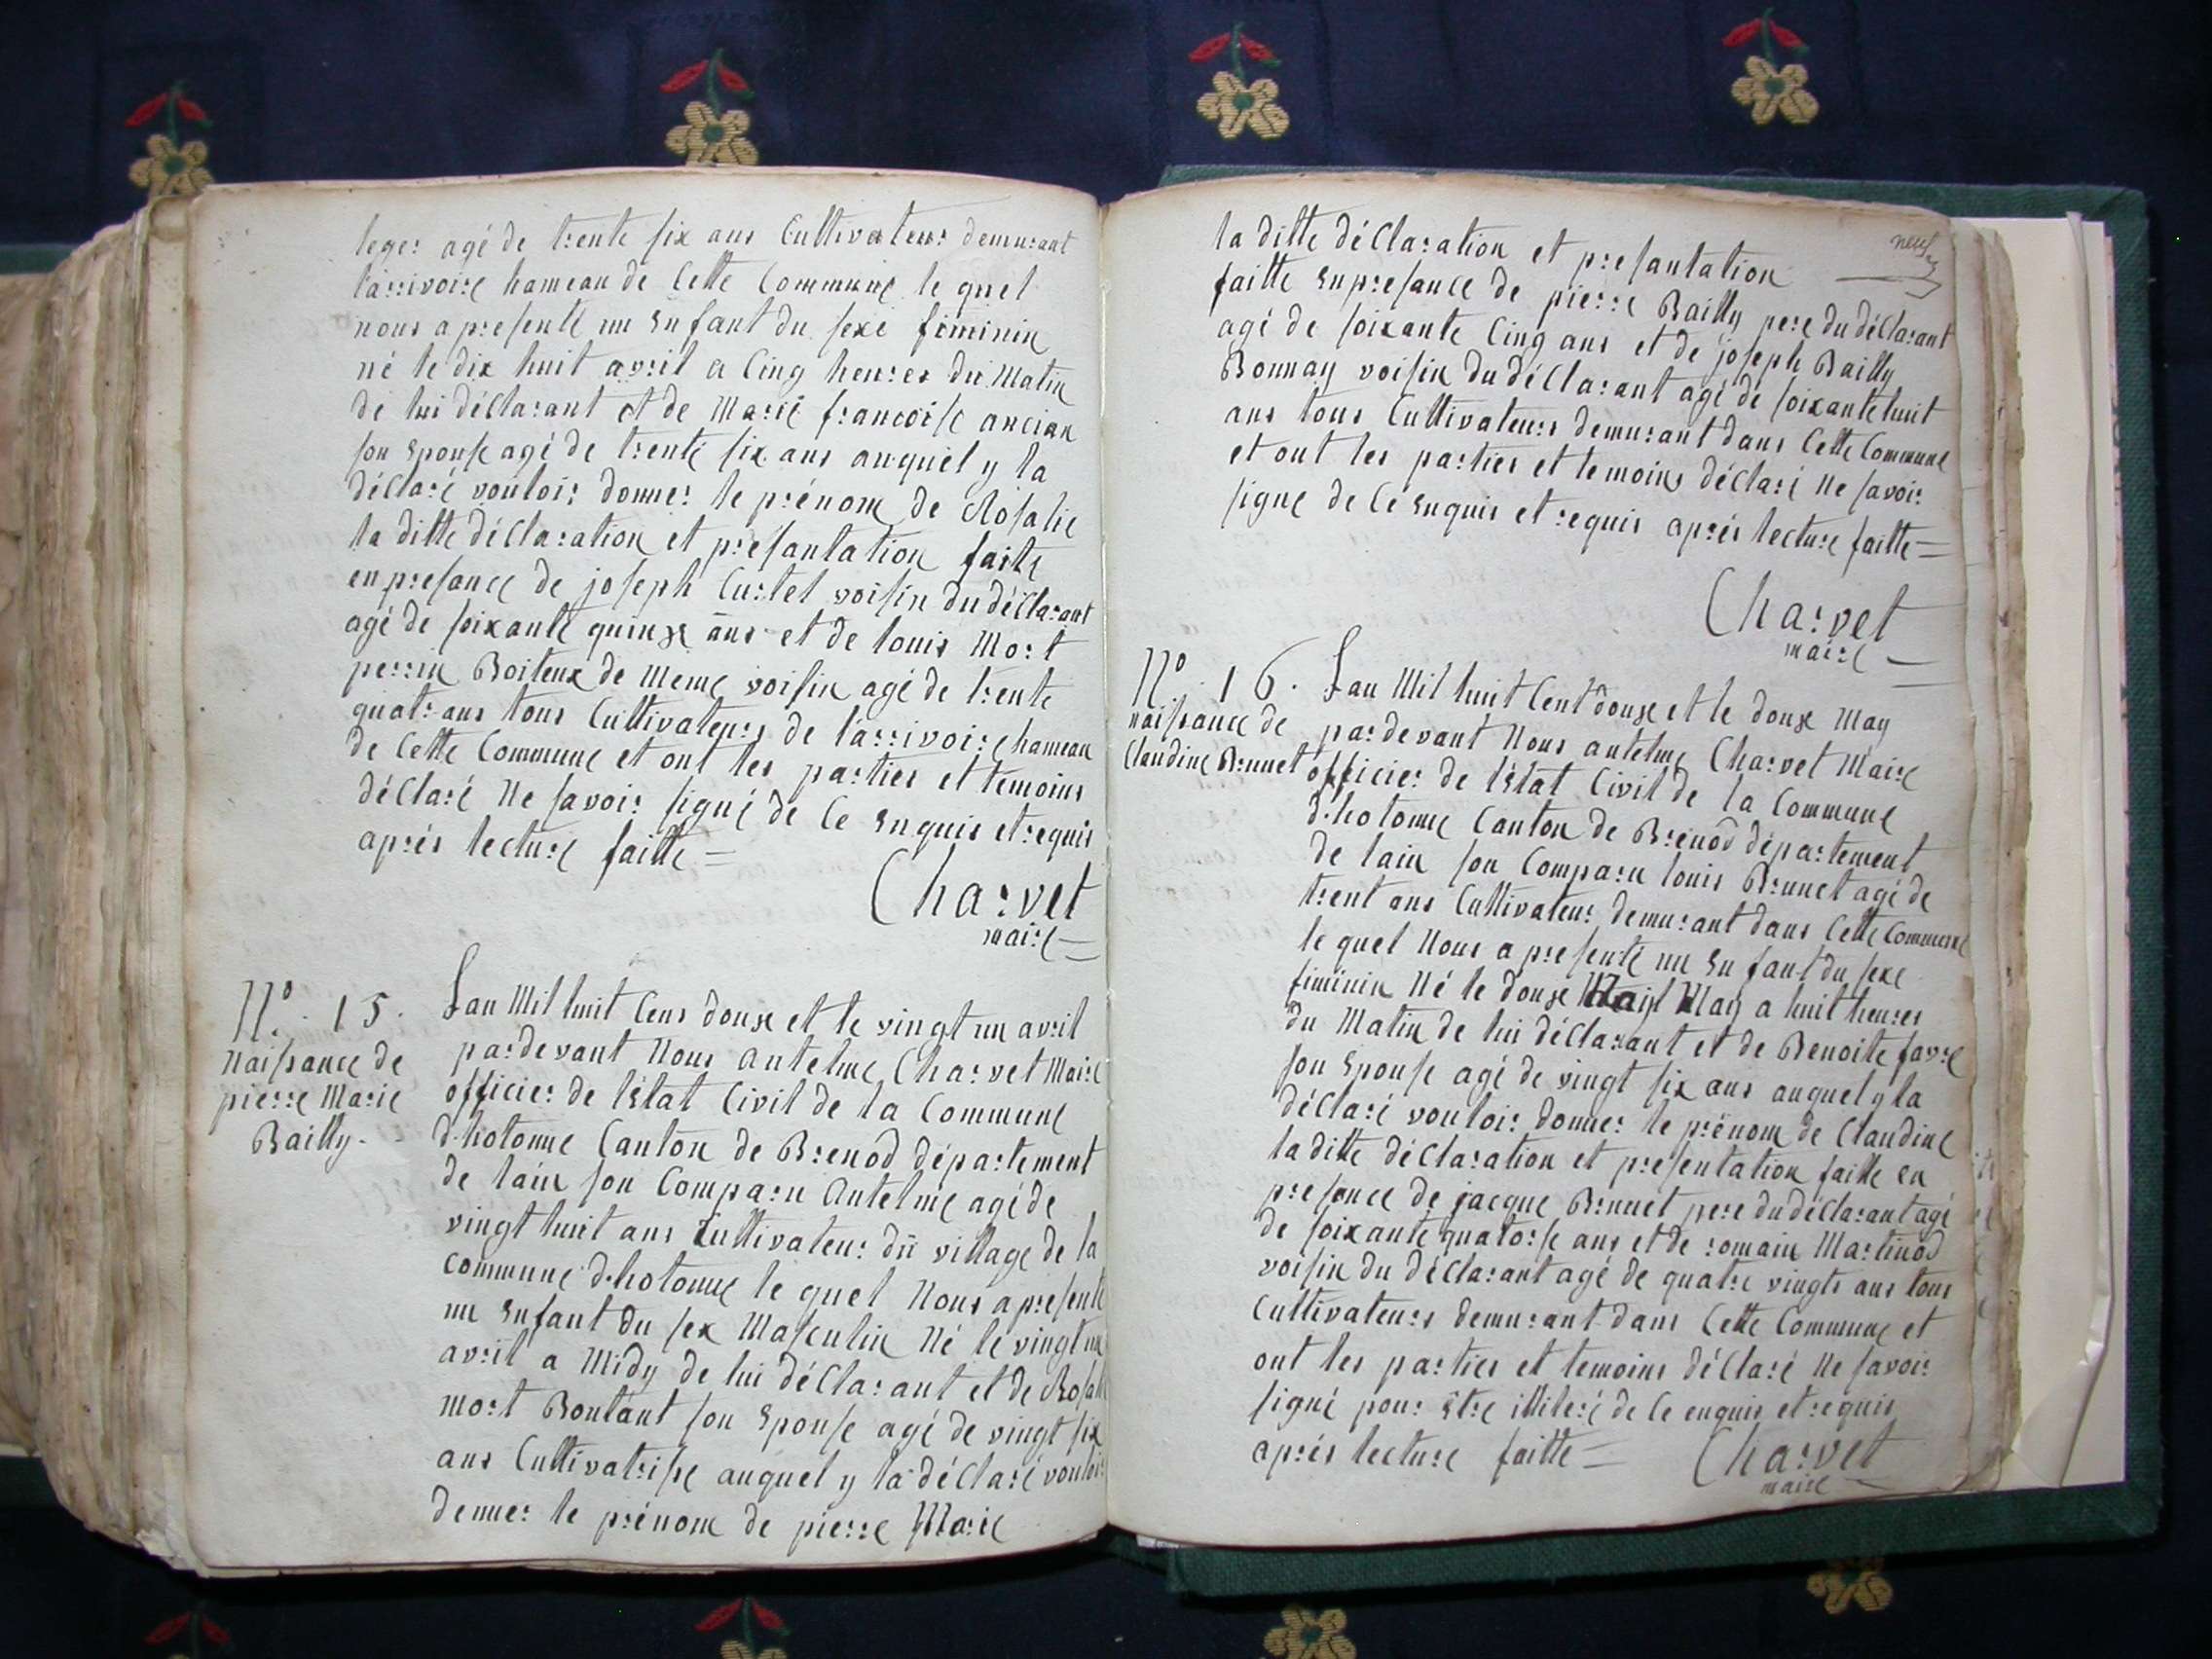 leger agé de trente six ans Cultivateur demurant
larrivoire hameau de Cette Commune le quel
nous a presenté un Enfant du sexe feminin
né le dix huit avril a Cinq heures du Matin
de lui déclarant et de Marie francoise ancian
son Epouse agé de trente six ans auquel y la
déclaré vouloir donner le prénom de Rosalie
la ditte déclaration et presantation faite
en presance de joseph Curtet voisin du déclarant
agé de soixante quinze ans et de louis Mort
perrin Boiteux de Meme voisin agé de trente
quatr ans tous Cultivateurs de larrivoire hameau
de Cette Commune et ont les parties et temoins
déclaré Ne savoir signé de Ce Enquis et requis
aprés lecture faitte =
Charvet
maire =
N.º 15.
Naissance de
pierre Marie
Bailly.
Lan Mil huit Cens douze et le vingt un avril
pardevant Nous antelme Charvet Maire
officier de lEtat Civil de la Commune
d.hotonne Canton de Brenod département
de lain son Comparu Antelme agé de
vingt huit ans Cultivateur du village de la
commune d.hotonne le quel Nous a presenté
un Enfant du sex Masculin Né le vingt un
avril a Midy de lui déclarant et de Rosalie
mort Boutant son Epouse agé de vingt six
ans Cultivatrisse auquel y la déclaré vouloir
denner le prénom de pierre Marie
neuf
la ditte déclaration et presantation
faitte En presance de pierre Bailly pere du déclarant
agé de soixante Cinq ans et de joseph Bailly
Bonnay voisin du déclarant agé de soixante huit
ans tous Cultivateurs demurant dans Cette Commune
et ont les parties et temoins déclaré Ne savoir
signe de Ce Enquis et requis aprés lecture faitte =
Charvet
maire
N.º 16.
naissance de
Claudine Brunet
Lan Mil huit Cent douze et le douze May
pardevant Nous antelme Charvet Maire
officier de lEtat Civil de la Commune
d.hotonne Canton de Brénod département
de lain son Comparu louis Brunet agé de
trent ans Cultivateur demurant dans Cette Commune
le quel Nous a presenté un Enfant du sexe
feminin Né le douze May a huit heures
du Matin de lui déclarant et de Benoite favre
son Epouse agé de vingt six ans auquel y la
déclaré vouloir donner le prénom de Claudine
la ditte déclaration et presentation faitte en
presence de jacque Brunet pere du déclarant agé
de soixante quatorse ans et de romain Martinod
voisin du déclarant agé de quatre vingts ans tous
Cultivateurs demurant dans Cette Commune et
ont les parties et temoins déclaré Ne savoir
signé pour Etre illiteré de Ce enquis et requis
aprés lecture faitte =
Charvet
maire